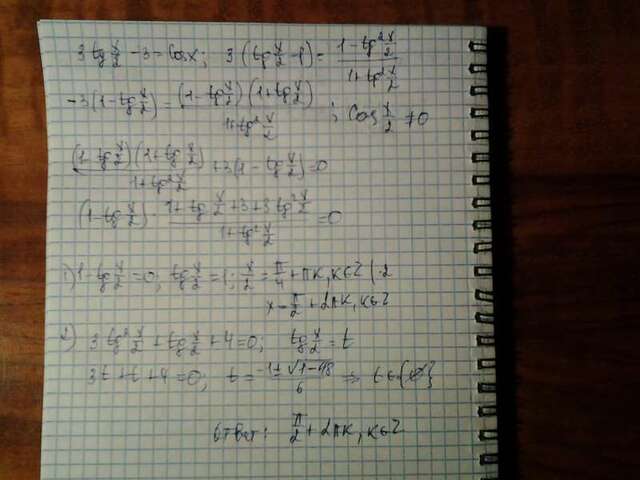 3 tg x/2 - 3 = cosx; 3(tg x/2 - 1) = (1 - tg² x/2)/(1 + tg² x/2)
-3(1 - tg x/2) = (1 - tg x/2)(1 + tg x/2)/(1 + tg² x/2); cos x/2 ≠ 0
(1 - tg x/2)(1 + tg x/2)/(1 + tg² x/2) + 3(1 - tg x/2) = 0
(1 - tg x/2) · (1 + tg x/2 + 3 + 3 tg² x/2)/(1 + tg² x/2) = 0
1) 1 - tg x/2 = 0; tg x/2 = 1; x/2 = π/4 + πK, K∈Z | ·2
x = π/2 + 2πK, K∈Z
2) 3 tg² x/2 + tg x/2 + 4 = 0; tg x/2 = t
3t + t + 4 = 0; t = (-1 ± √(1 - 48))/6 => t∈{∅}
Ответ: π/2 + 2πK, K∈Z